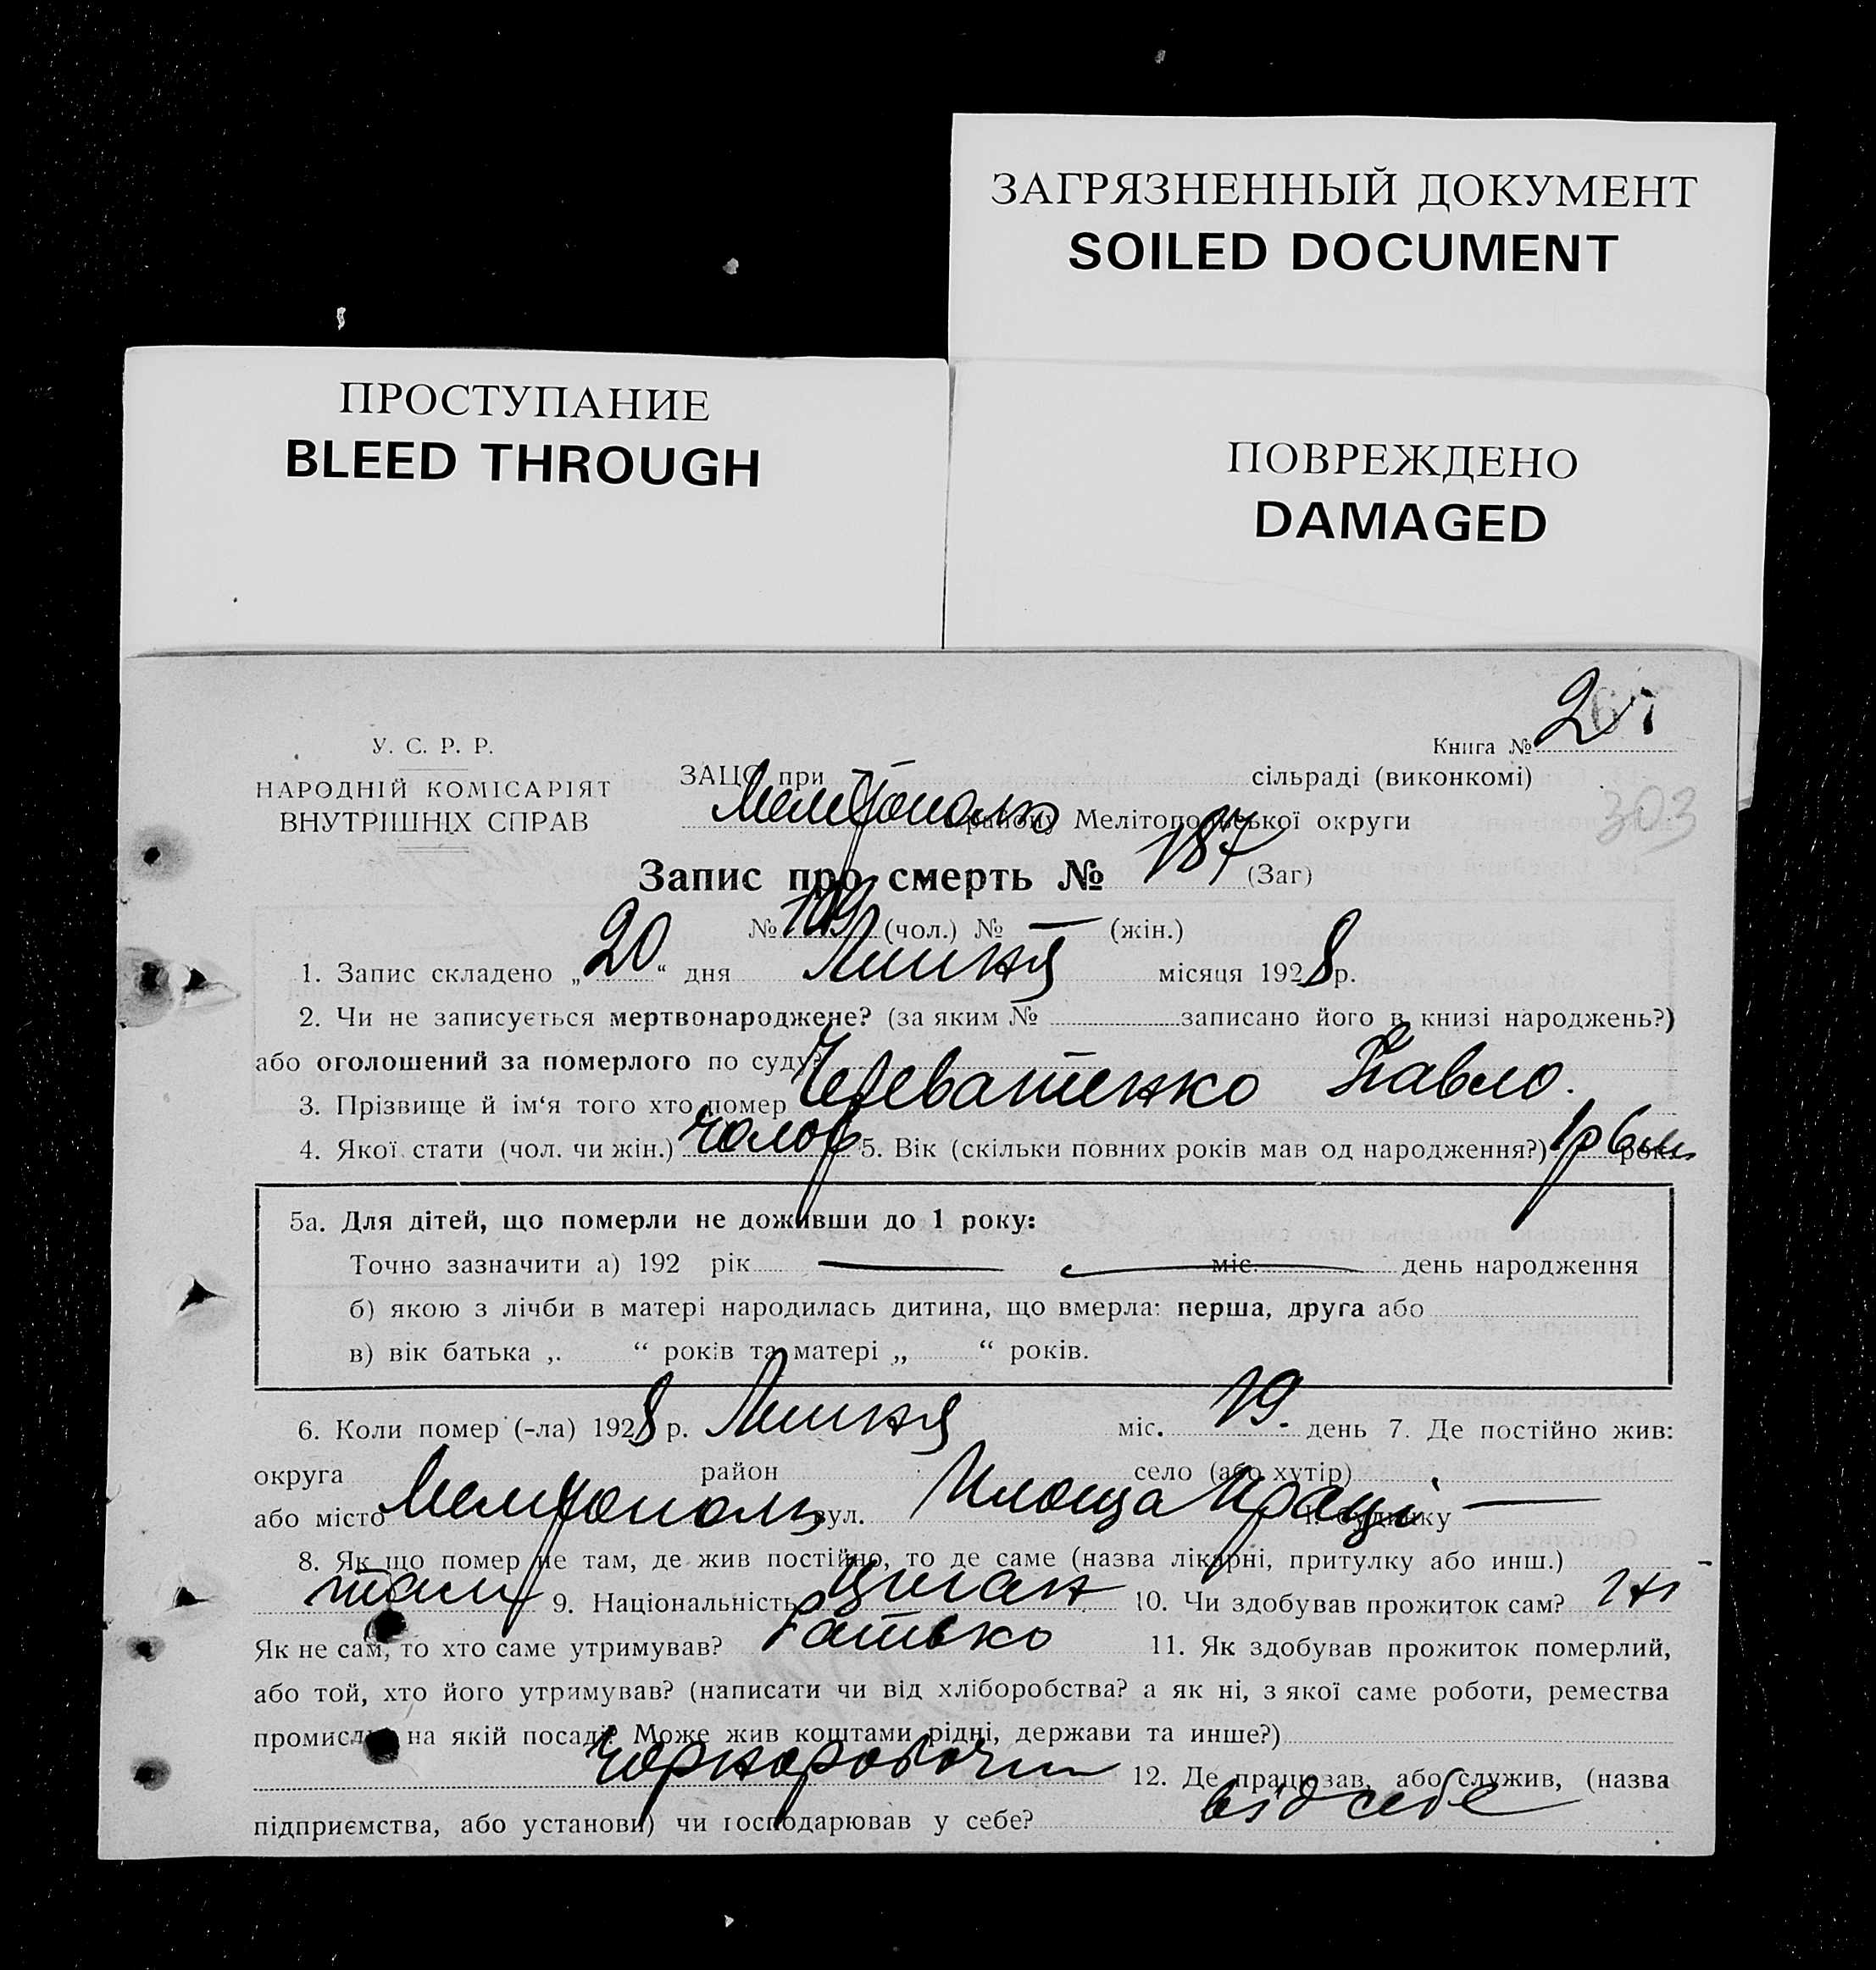 ЗАГРЯЗНЕННЫЙ ДОКУМЕНТ
SOILED DOCUMENT
ПРОСТУПАНИЕ
BLEED THROUGH
ПОВРЕЖДЕНО
DAMAGED
Книга № 2
303
У. С. Р. Р.
НАРОДНІЙ КОМІСАРІЯТ
ВНУТРІШНІХ СПРАВ
ЗАЦС при сільраді (виконкомі)
району Мелітопольської округи
Запис про смерть № 187 (Заг)
№ 109 (чол.) № — (жін.)
1. Запис складено „20“ дня Липня місяця 1928 р.
2. Чи не записується мертвонароджене? (за яким № записано його в книзі народжень?)
або оголошений за померлого по суду? —
3. Прізвище й ім‘я того хто помер Череватенко Павло.
4. Якої стати (чол. чи жін.) чолов 5. Вік (скільки повних років мав од народження?) 1 р 6 м рок
5а. Для дітей, що померли не доживши до 1 року:
Точно зазначити а) 192 рік — міс. — день народження
б) якою з лічби в матері народилась дитина, що вмерла: перша, друга або
в) вік батька „ “ років та матері „ “ років.
6. Коли помер (-ла) 1928 р. Липня міс. 19. день 7. Де постійно жив:
округа район село (або хутір)
або місто Мелітополь вул. Площа Праці № будинку —
8. Як що помер не там, де жив постійно, то де саме (назва лікарні, притулку або инш.)
там 9. Національність Циган 10. Чи здобував прожиток сам? ні
Як не сам, то хто саме утримував? батько 11. Як здобував прожиток померлий,
або той, хто його утримував? (написати чи від хліборобства? а як ні, з якої саме роботи, ремества
промислу, на якій посаді? Може жив коштами рідні, держави та инше?)
чорноробочий 12. Де працював, або служив, (назва
підприємства, або установи) чи господарював у себе? від себе